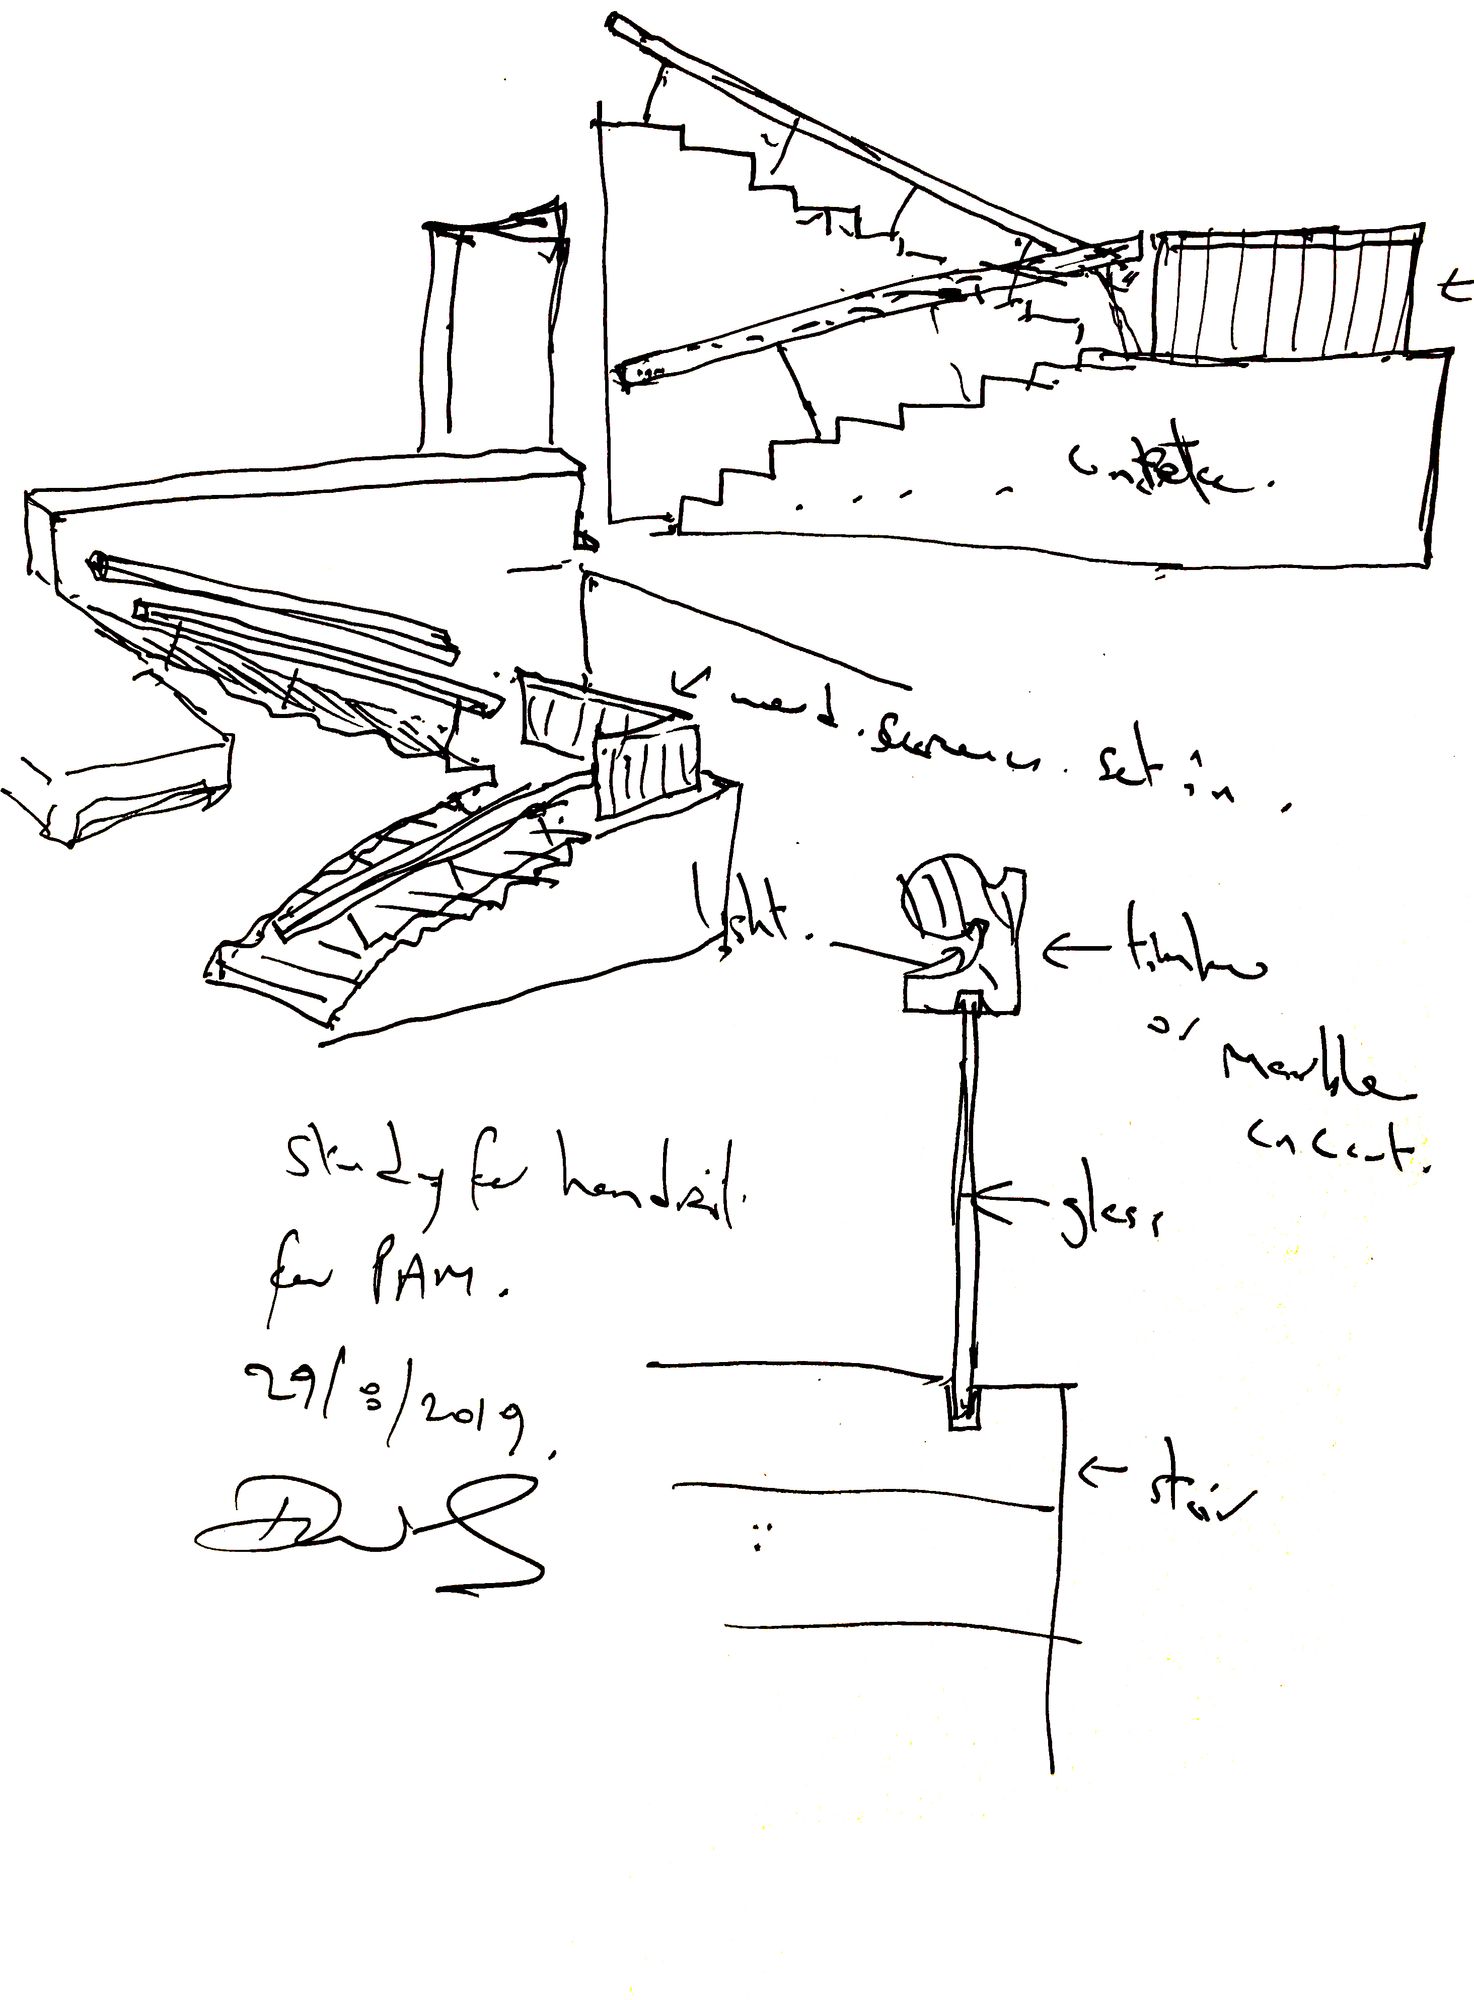 concrete.
screens. set in.
light.
timber
or
marble
glass
stair
study for handrail
for PAM.
29/8/2019.